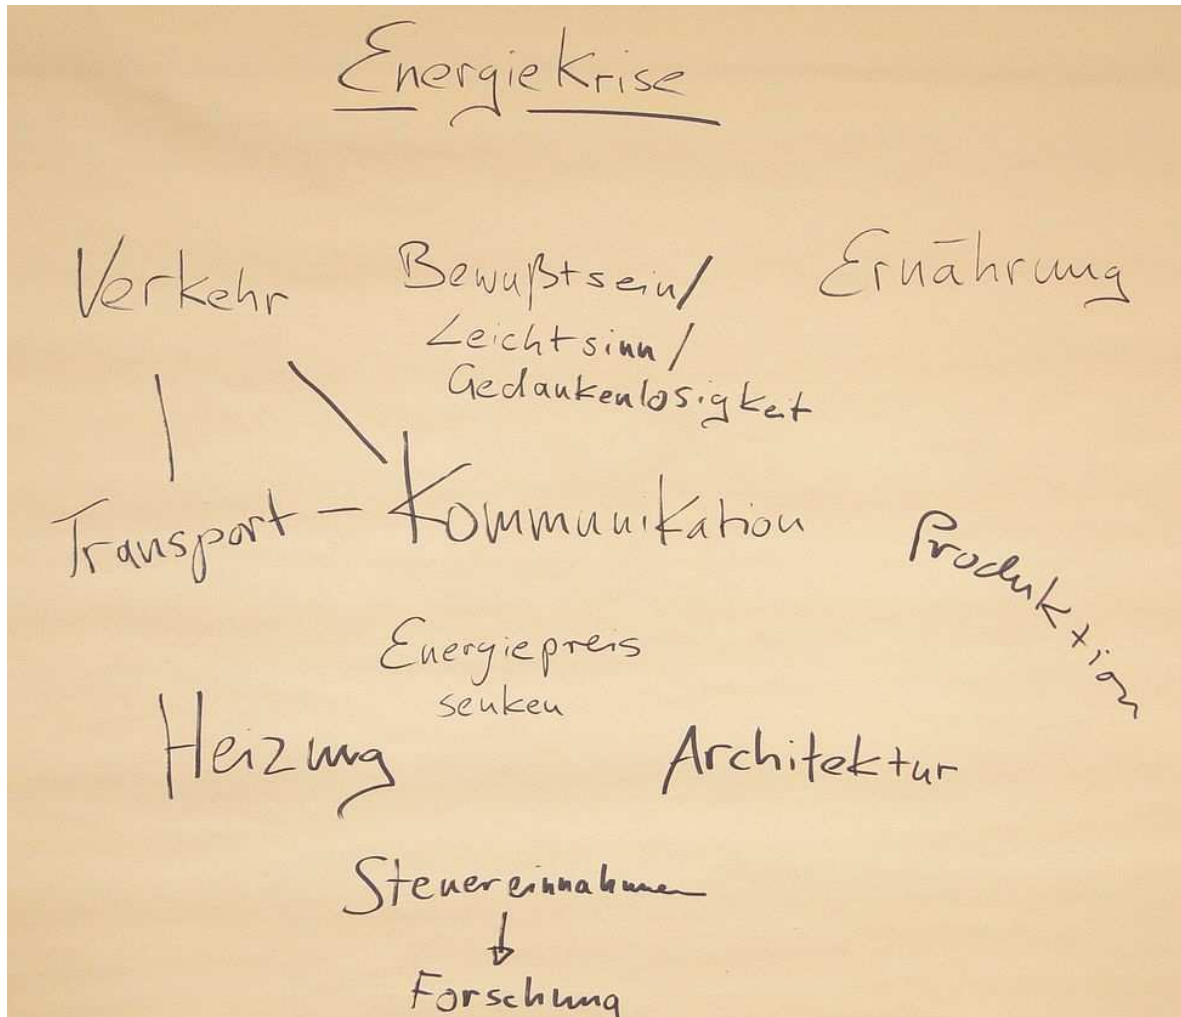 Energiekrise
Verkehr
Bewußtsein/
Leichtsinn/
Gedankenlosigkeit
Ernährung
Transport - Kommunikation
Produktion
Energiepreis
senken
Heizung
Architektur
Steuereinnahmen
Forschung